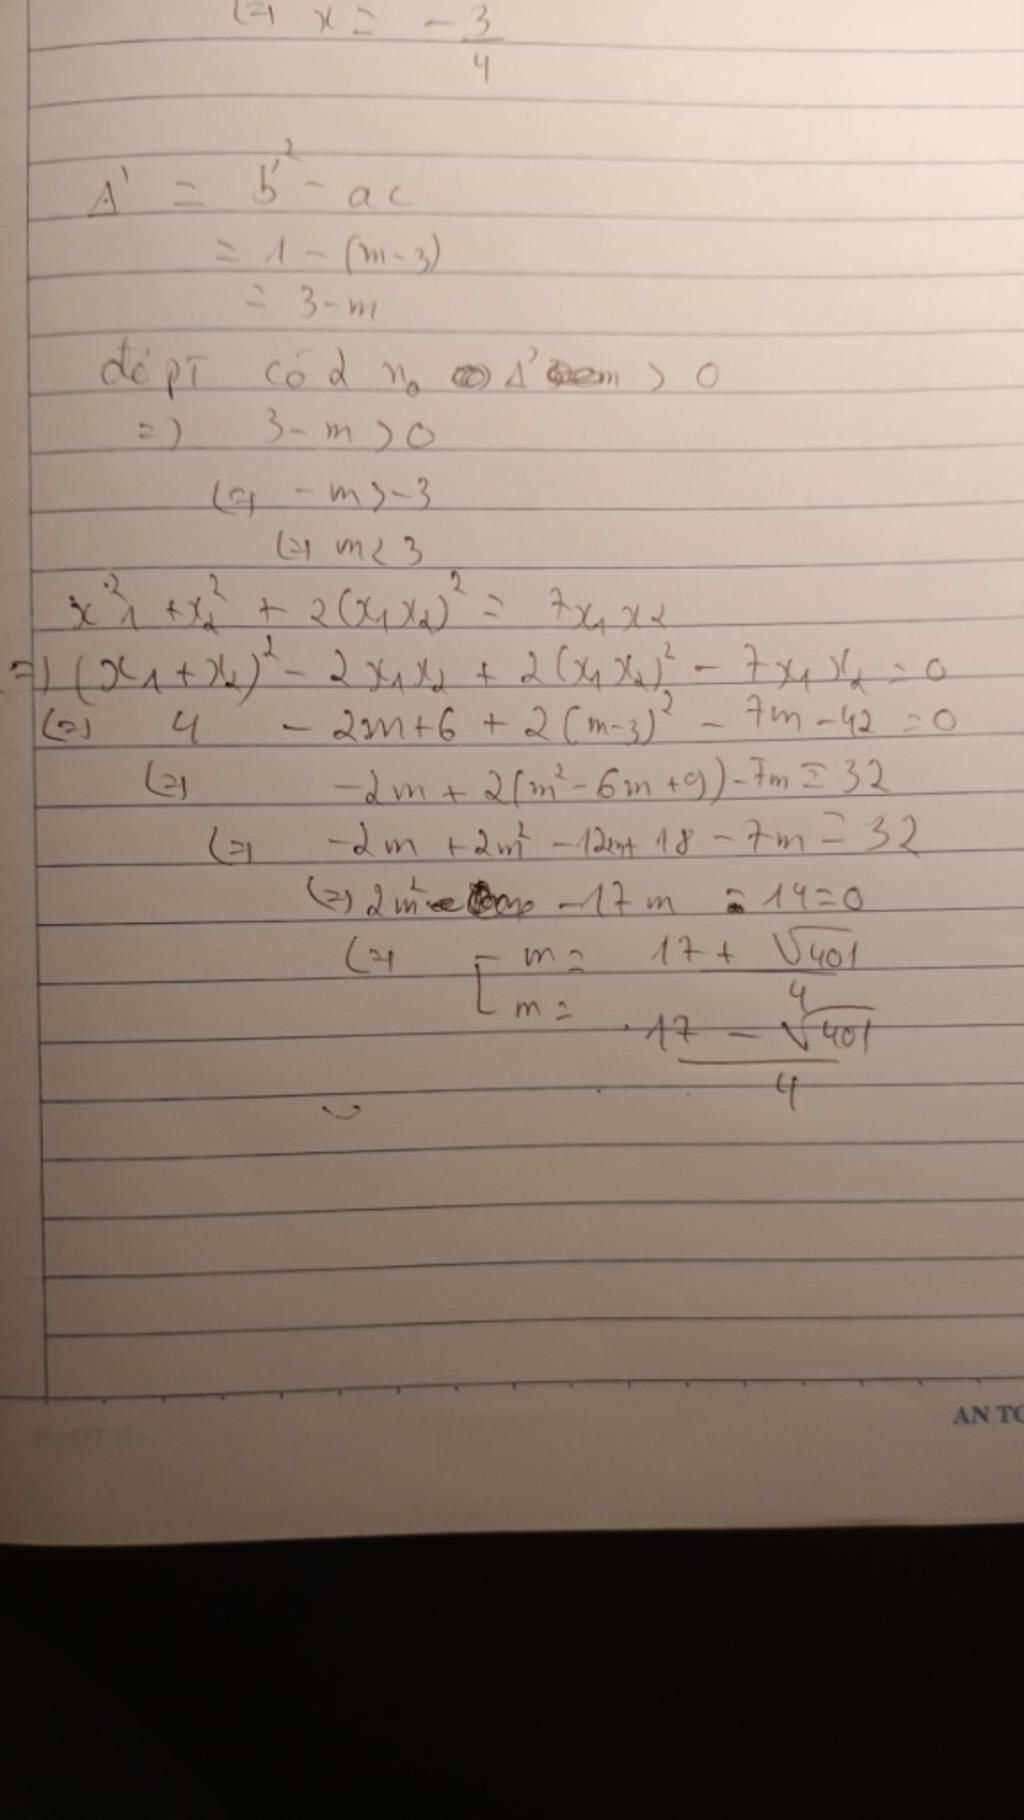 (=) x = -3/4
Δ' = b'² - ac
= 1 - (m-3)
= 3-m
để pt có 2 n₀ Δ' > 0
=) 3-m > 0
(=) -m > -3
(=) m < 3
x²₁ + x₂² + 2(x₁x₂)² = 7x₁x₂
=) (x₁+x₂)² - 2x₁x₂ + 2(x₁x₂)² - 7x₁x₂ = 0
(=) 4 - 2m+6 + 2(m-3)² - 7m - 42 = 0
(=) -2m + 2(m²-6m+9) - 7m = 32
(=) -2m + 2m² - 12m + 18 - 7m = 32
(=) 2m² - 17m - 14 = 0
(=) [ m = (17 + √401)/4
m = (17 - √401)/4
AN TO